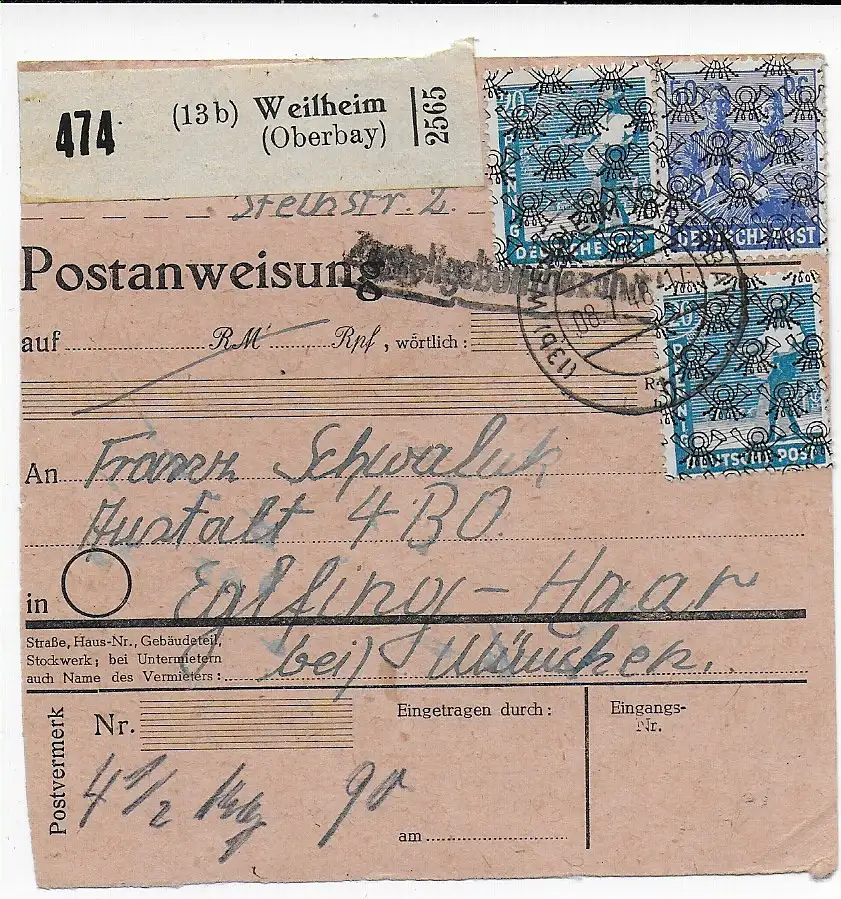 474
(13b) Weilheim
(Oberbay)
2565
Steinstr. 2
Postanweisung
auf RM Rpf, wörtlich:
DEUTSCHE POST
DEUTSCHE POST
(13b) WEILHEIM
08.7.48.-17
DEUTSCHE POST
An Franz Schwaluk
Anstalt 4 BO.
in Eglfing-Haar
Straße, Haus-Nr., Gebäudeteil,
Stockwerk; bei Untermietern
auch Name des Vermieters:
bei München.
Postvermerk
Nr.
Eingetragen durch:
Eingangs-
Nr.
4 1/2 kg 90
am